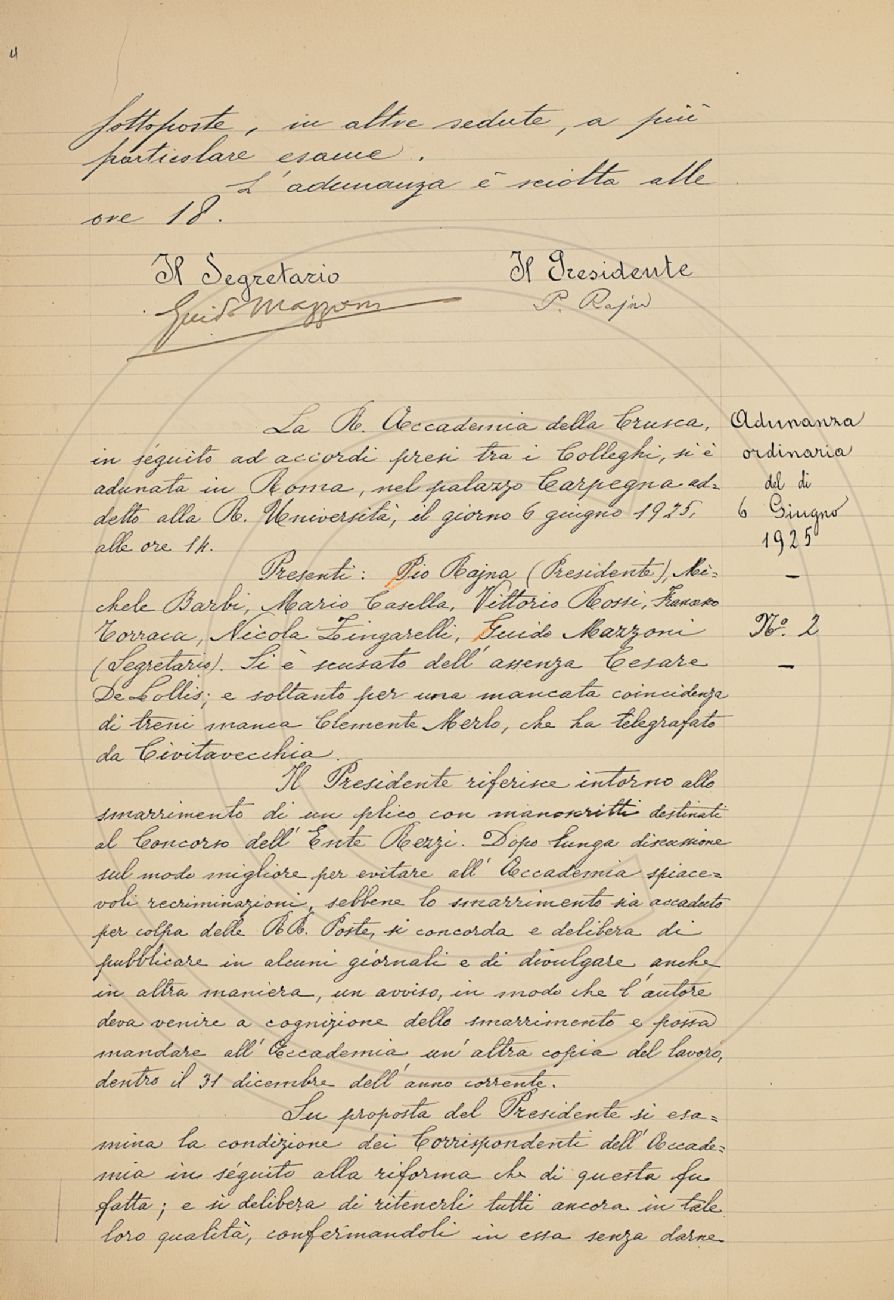 4
sottoposte, in altre sedute, a più
particolare esame.
L'adunanza è sciolta alle
ore 18.
Il Segretario
Guido Mazzoni
Il Presidente
P. Rajna
La R. Accademia della Crusca,
in séguito ad accordi presi tra i Colleghi, si è
adunata in Roma, nel palazzo Carpegna ad=
detto alla R. Università, il giorno 6 giugno 1925,
alle ore 14.
Adunanza
ordinaria
del dì
6 Giugno
1925
Nº. 2
Presenti: Pio Rajna (Presidente), Mi=
chele Barbi, Mario Casella, Vittorio Rossi, Francesco
Torraca, Nicola Zingarelli, Guido Mazzoni
(Segretario). Si è scusato dell'assenza Cesare
De Lollis; e soltanto per una mancata coincidenza
di treni manca Clemente Merlo, che ha telegrafato
da Civitavecchia.
Il Presidente riferisce intorno allo
smarrimento di un plico con manoscritti destinati
al Concorso dell'Ente Rezzi. Dopo lunga discussione
sul modo migliore per evitare all'Accademia spiace=
voli recriminazioni, sebbene lo smarrimento sia accaduto
per colpa delle RR. Poste, si concorda e delibera di
pubblicare in alcuni giornali e di divulgare anche
in altra maniera, un avviso, in modo che l'autore
deva venire a cognizione dello smarrimento e possa
mandare all'Accademia un'altra copia del lavoro,
dentro il 31 dicembre dell'anno corrente.
Su proposta del Presidente si esa=
mina la condizione dei Corrispondenti dell'Accade=
mia in séguito alla riforma che di questa fu
fatta; e si delibera di ritenerli tutti ancora in tale
loro qualità, confermandoli in essa senza darne